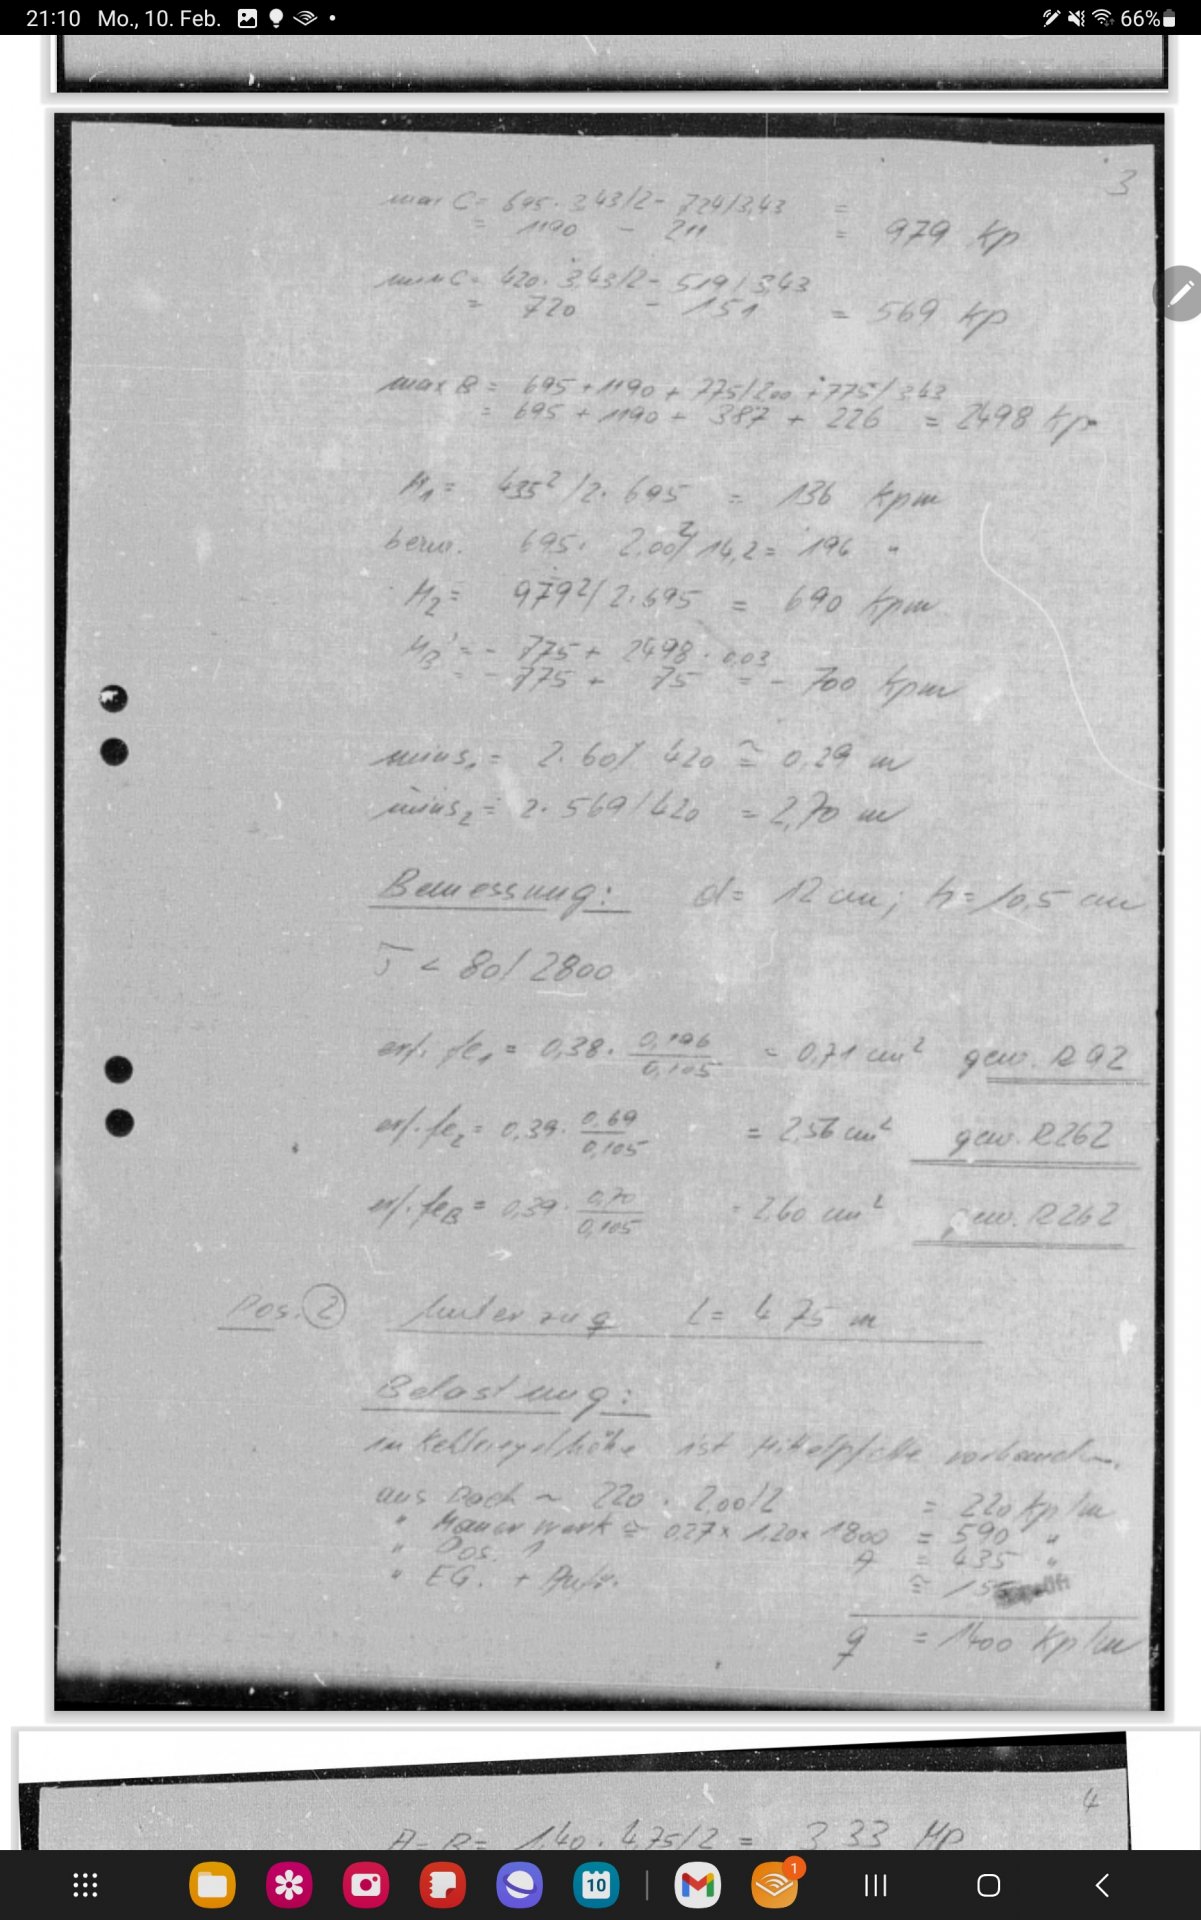 21:10 Mo., 10. Feb.
66%
3
max C = 695 · 3,43/2 - 724/3,43 =
= 1190 - 211 = 979 Kp
min C = 420 · 3,43/2 - 519/3,43
= 720 - 151 = 569 Kp
max B = 695 + 1190 + 775/2,00 + 775/3,43
= 695 + 1190 + 387 + 226 = 2498 Kp
M₁ = 435²/2·695 = 136 Kpm
bem. 695 · 2,00²/14,2 = 196 "
M₂ = 979²/2·695 = 690 Kpm
M_B' = - 775 + 2498 · 0,03
= - 775 + 75 = - 700 Kpm
min s₁ = 2·60/420 ≅ 0,29 m
min s₂ = 2·569/420 = 2,70 m
Bemessung: d = 12 cm; h = 10,5 cm
< 80/2800
erf. fe₁ = 0,38 · 0,196/0,105 = 0,71 cm² gew. R 92
erf. fe₂ = 0,39 · 0,69/0,105 = 2,56 cm² gew. R 262
erf. fe_B = 0,39 · 0,70/0,105 = 2,60 cm² gew. R 262
Pos. 2 Unterzug L = 4,75 m
Belastung:
in Kehlriegelhöhe ist Mittelpfette vorhanden.
aus Dach ~ 220 · 2,00/2 = 220 Kp/m
" Mauerwerk ≅ 0,27 x 1,20 x 1800 = 590 "
" Pos. 1 A = 435 "
" EG. + Aufr. ≅ 155
q = 1400 Kp/m
4
A = B = 1,40 · 4,75/2 = 3,33 Mp
10
1